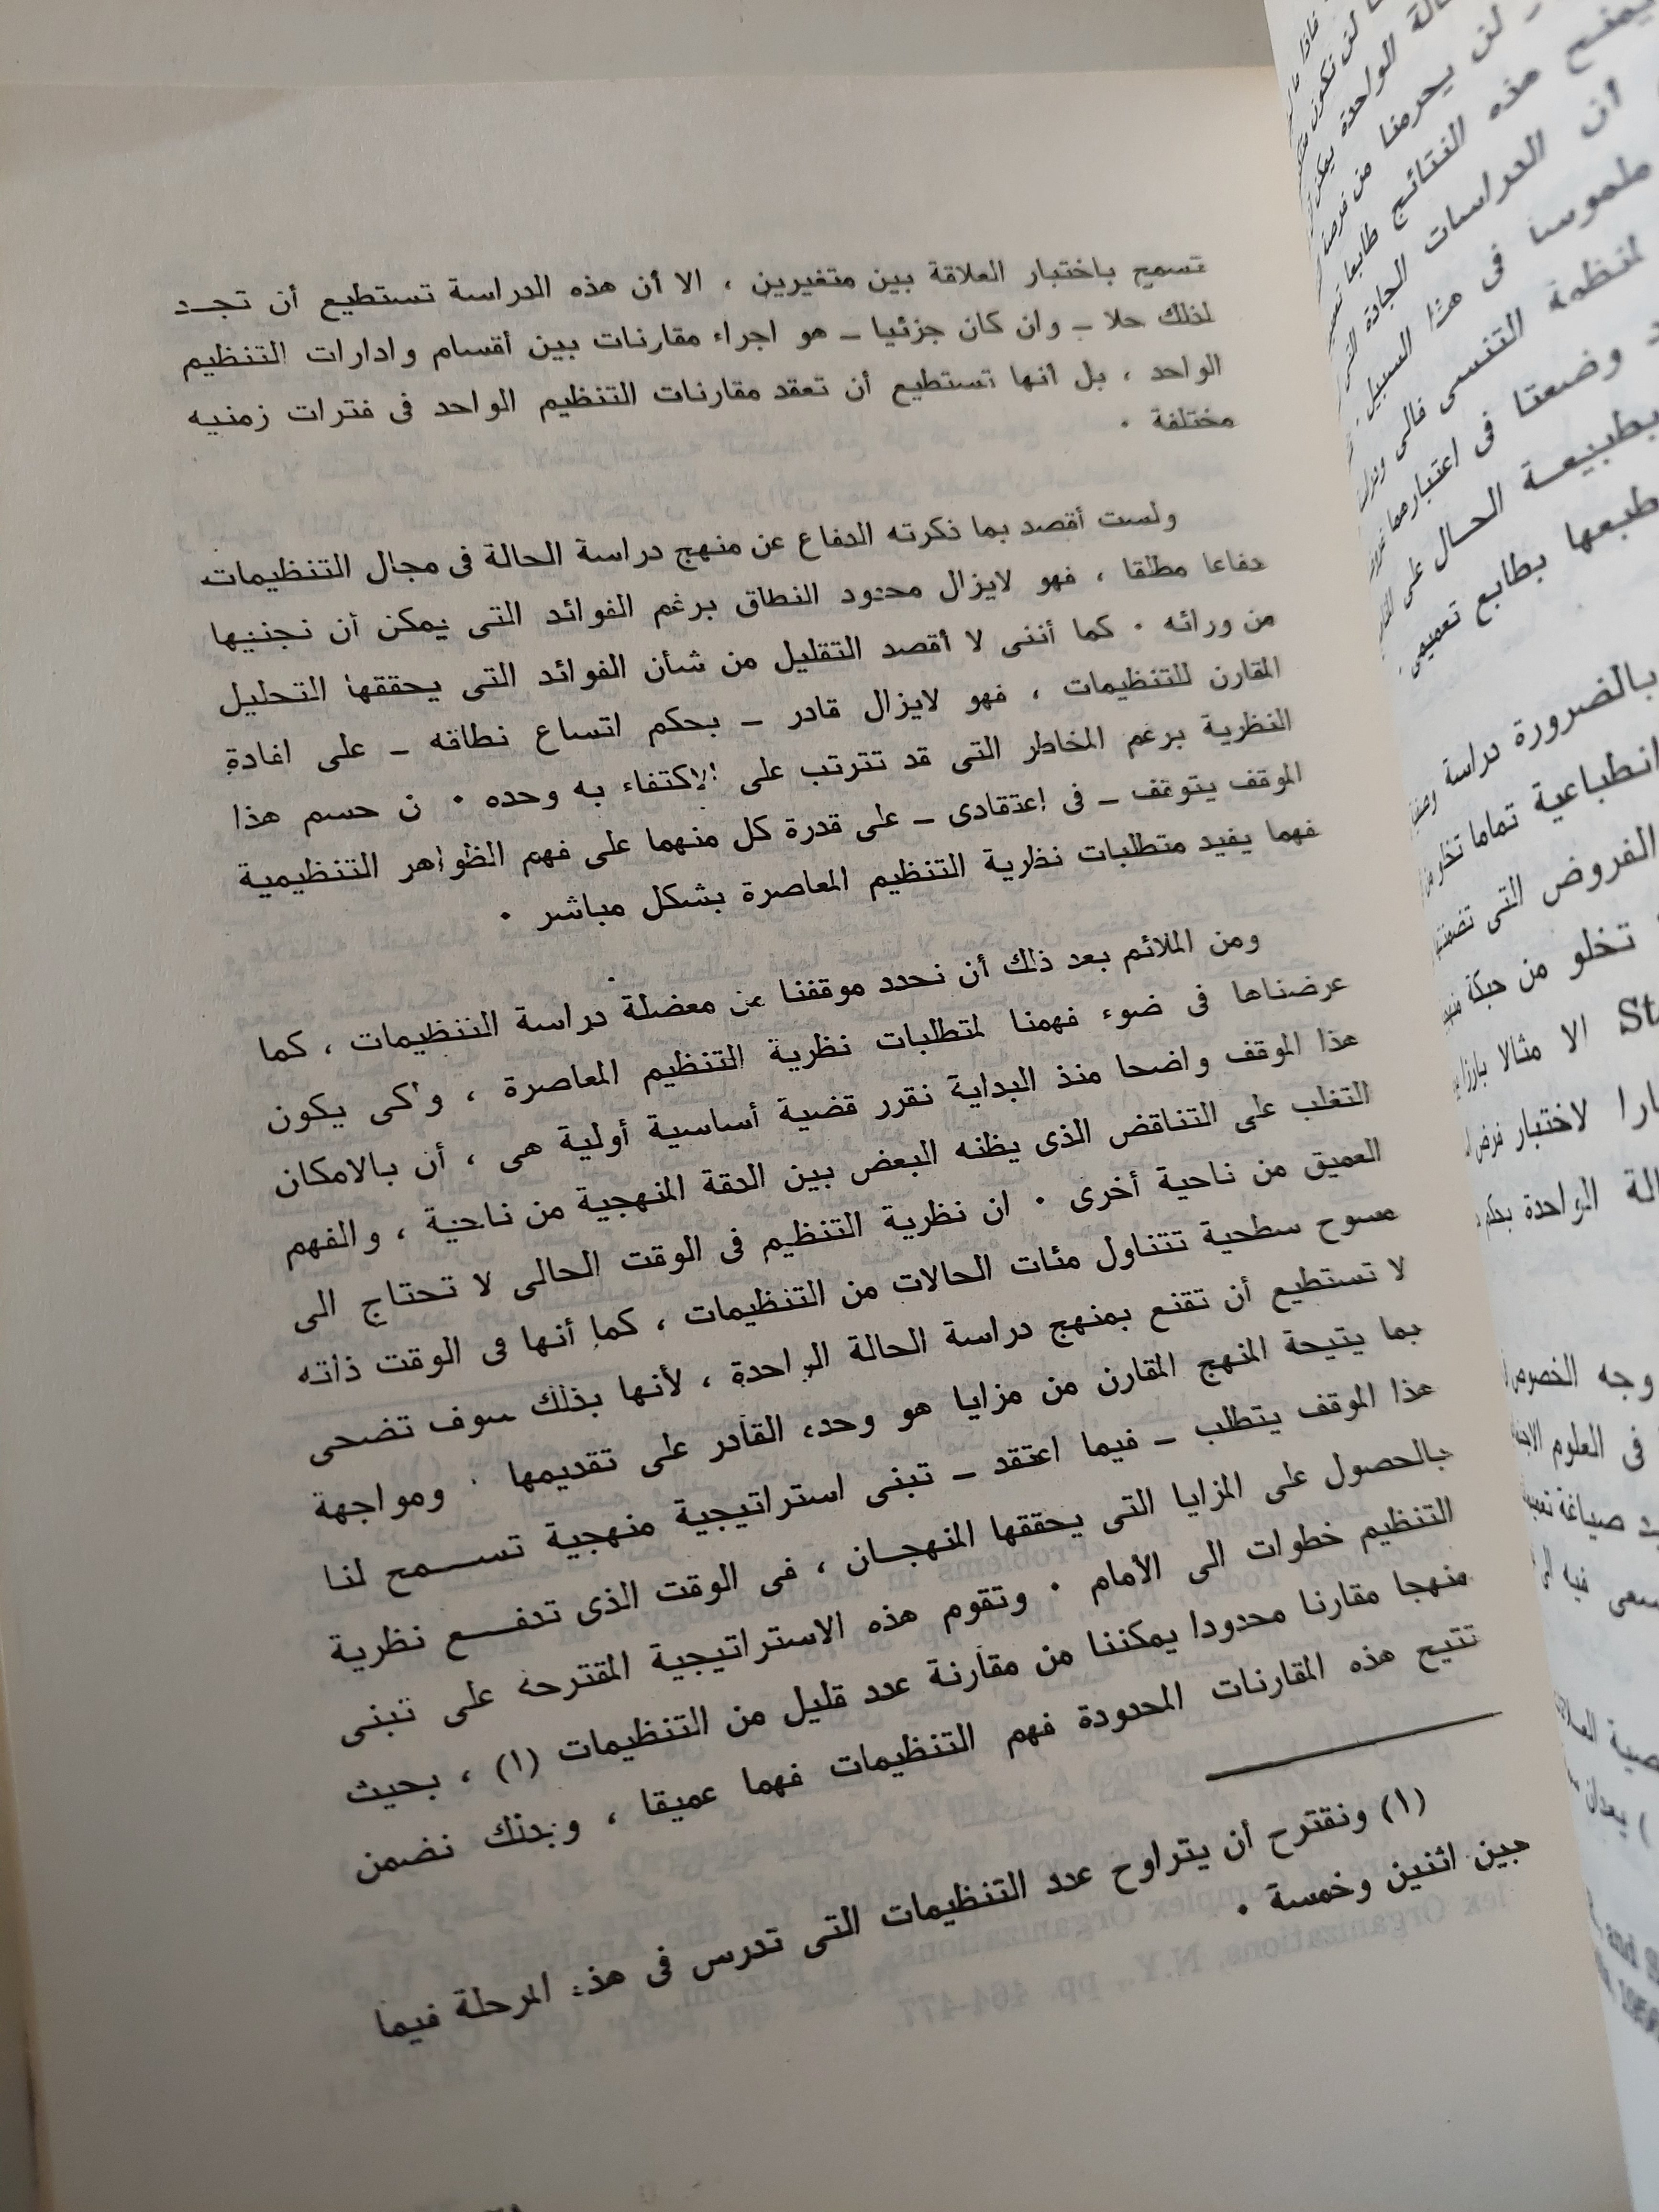 تسمح باختبار العلاقة بين متغيرين ، الا أن هذه الدراسة تستطيع أن تجد
لذلك حلا ــ وان كان جزئيا ــ هو اجراء مقارنات بين أقسام وادارات التنظيم
الواحد ، بل أنها تستطيع أن تعقد مقارنات التنظيم الواحد فى فترات زمنيه
مختلفة .
ولست أقصد بما ذكرته الدفاع عن منهج دراسة الحالة فى مجال التنظيمات
دفاعا مطلقا ، فهو لايزال محدود النطاق برغم الفوائد التى يمكن أن نجنيها
من ورائه . كما أننى لا أقصد التقليل من شأن الفوائد التى يحققها التحليل
المقارن للتنظيمات ، فهو لايزال قادر ــ بحكم اتساع نطاقه ــ على افادة
النظرية برغم المخاطر التى قد تترتب على الاكتفاء به وحده . ن حسم هذا
الموقف يتوقف ــ فى اعتقادى ــ على قدرة كل منهما على فهم الظواهر التنظيمية
فهما يفيد متطلبات نظرية التنظيم المعاصرة بشكل مباشر .
ومن الملائم بعد ذلك أن نحدد موقفنا من معضلة دراسة التنظيمات ، كما
عرضناها فى ضوء فهمنا لمتطلبات نظرية التنظيم المعاصرة ، ولكى يكون
هذا الموقف واضحا منذ البداية نقرر قضية أساسية أولية هى ، أن بالامكان
التغلب على التناقض الذى يظنه البعض بين الدقة المنهجية من ناحية ، والفهم
العميق من ناحية أخرى . ان نظرية التنظيم فى الوقت الحالى لا تحتاج الى
مسوح سطحية تتناول مئات الحالات من التنظيمات ، كما أنها فى الوقت ذاته
لا تستطيع أن تقنع بمنهج دراسة الحالة الواحدة ، لأنها بذلك سوف تضحى
بما يتيحة المنهج المقارن من مزايا هو وحده القادر على تقديمها . ومواجهة
هذا الموقف يتطلب ــ فيما اعتقد ــ تبنى استراتيجية منهجية تسمح لنا
بالحصول على المزايا التى يحققها المنهجان ، فى الوقت الذى تدفع نظرية
التنظيم خطوات الى الأمام . وتقوم هذه الاستراتيجية المقترحة على تبنى
منهجا مقارنا محدودا يمكننا من مقارنة عدد قليل من التنظيمات (١) ، بحيث
تتيح هذه المقارنات المحدودة فهم التنظيمات فهما عميقا ، وبذلك نضمن
(١) ونقترح أن يتراوح عدد التنظيمات التى تدرس فى هذه المرحلة فيما
بين اثنين وخمسة .
لن يحرمنا من فرصة
هذه النتائج طابعا
ان الدراسات الجادة التى
ملموسا فى هذا السبيل
وضعتا فى اعتبارهما
بطبيعة الحال على
طبعها بطابع تعميمى
بالضرورة دراسة
انطباعية تماما تخلو من
الفروض التى
تخلو من حبكة
الا مثالا بارزا
لاختبار
الواحدة بحكم
وجه الخصوص
فى العلوم
صياغة